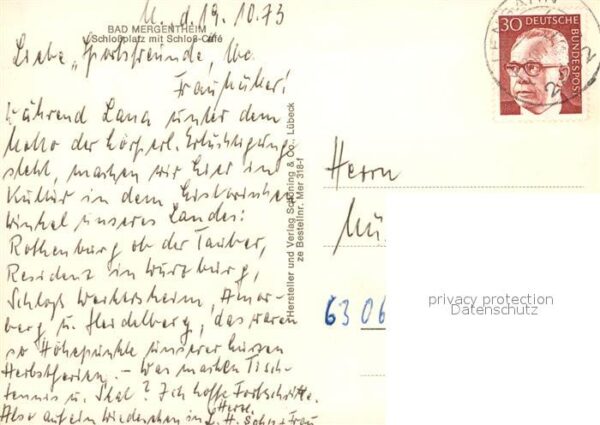 M., d. 19.10.73
BAD MERGENTHEIM
Schloßplatz mit Schloß-Café
Liebe „Sportfreunde“, lbe.
Frau Müller!
Während Lana unter dem
Motto der körperl. Ertüchtigung
steht, machen wir hier in
Kultur in dem historischen
Winkel unseres Landes:
Rothenburg ob der Tauber,
Residenz in Würzburg,
Schloß Weikersheim, Amor-
berg u. Heidelberg, das waren
so Höhepunkte unserer kurzen
Herbstferien. – Was machen Tisch-
tennis u. Skat? Ich hoffe Fortschritte.
Also auf ein Wiedersehen in
Herzl.
H. u. Frau
Hersteller und Verlag Schöning & Co., Lübeck
ze Bestellnr. Mer 318-f
30 DEUTSCHE
BUNDESPOST
Herrn
Mü
6306
privacy protection
Datenschutz